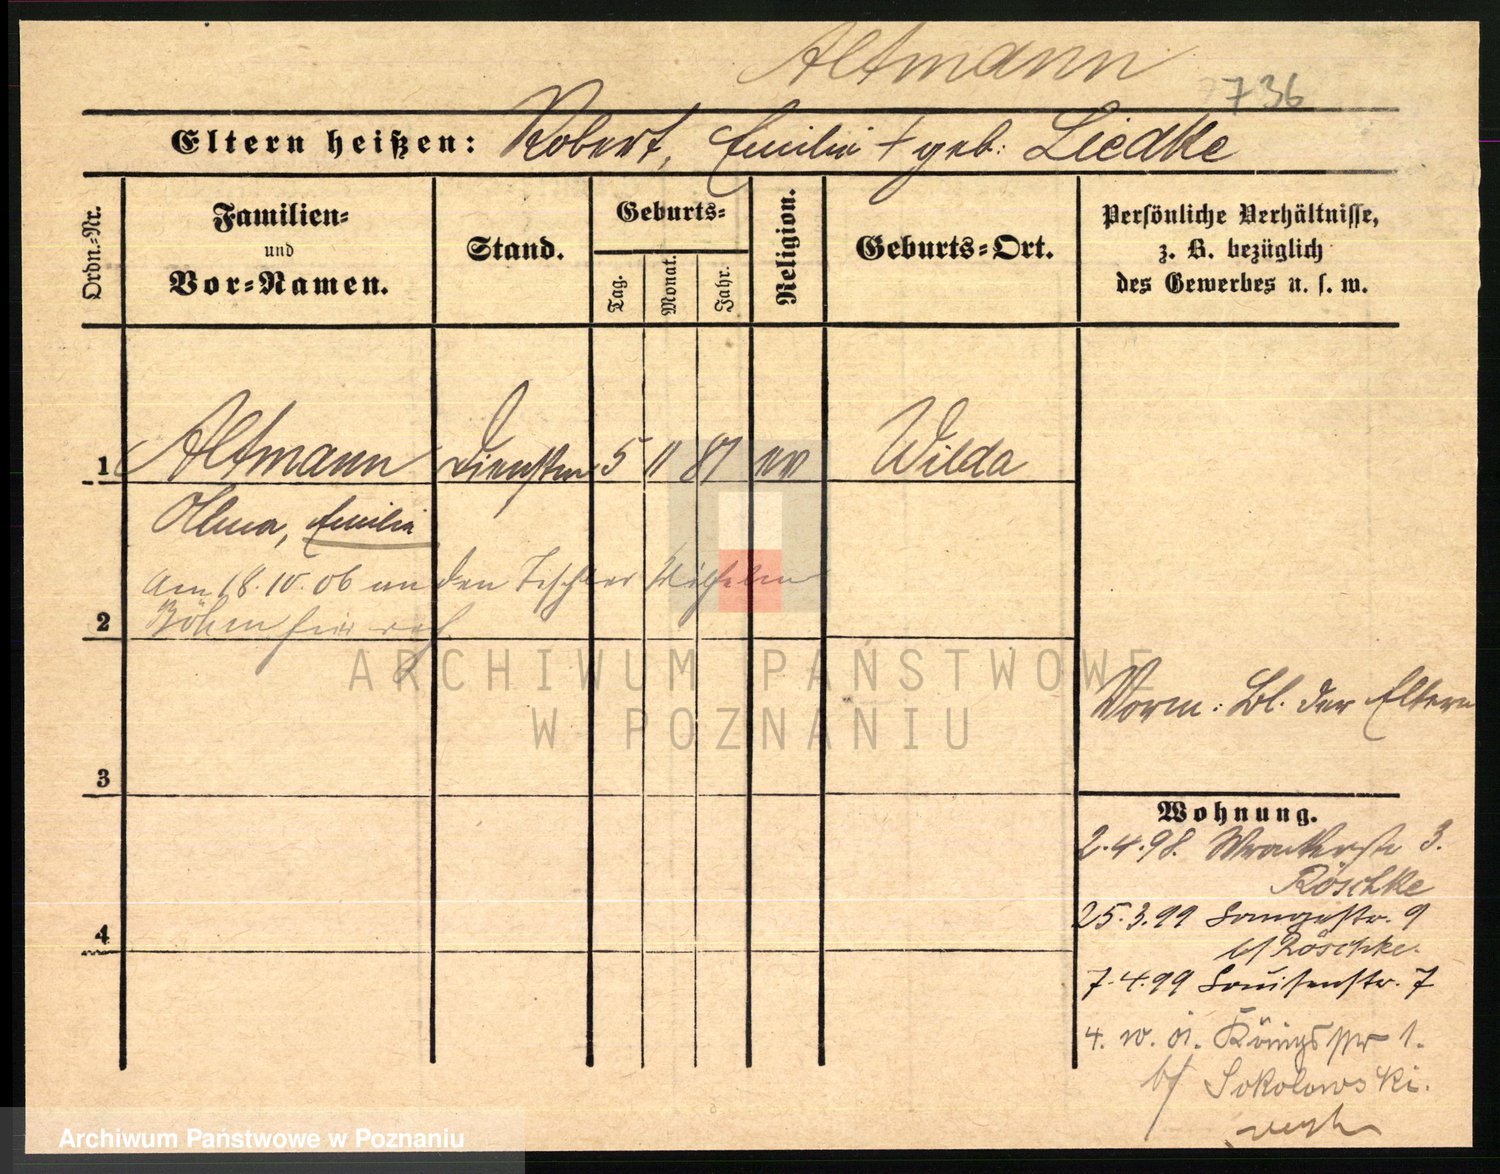 Altmann
7736
Eltern heißen: Robert, Emilie † geb. Liedtke
Ordn.-Nr.
Familien-
und
Vor-Namen.
Stand.
Geburts-
Tag.
Monat.
Jahr.
Religion.
Geburts-Ort.
Persönliche Verhältnisse,
z. B. bezüglich
des Gewerbes u. s. w.
1 Altmann 5 11 87 ev Wilda
Olma, Emilie
Am 18. 10. 06 an den Tischler Wilhelm
2 Böhm
ARCHIWUM PAŃSTWOWE
W POZNANIU
Vorm: Bl. der Eltern
3
Wohnung.
2.4.98. 3.
Röschke
25.3.99 Langestr. 9
b/ Röschke.
4
7.4.99 Louisenstr. 7
4. 10. 01. Königsstr 1.
b/ Sokolowski.
Archiwum Państwowe w Poznaniu